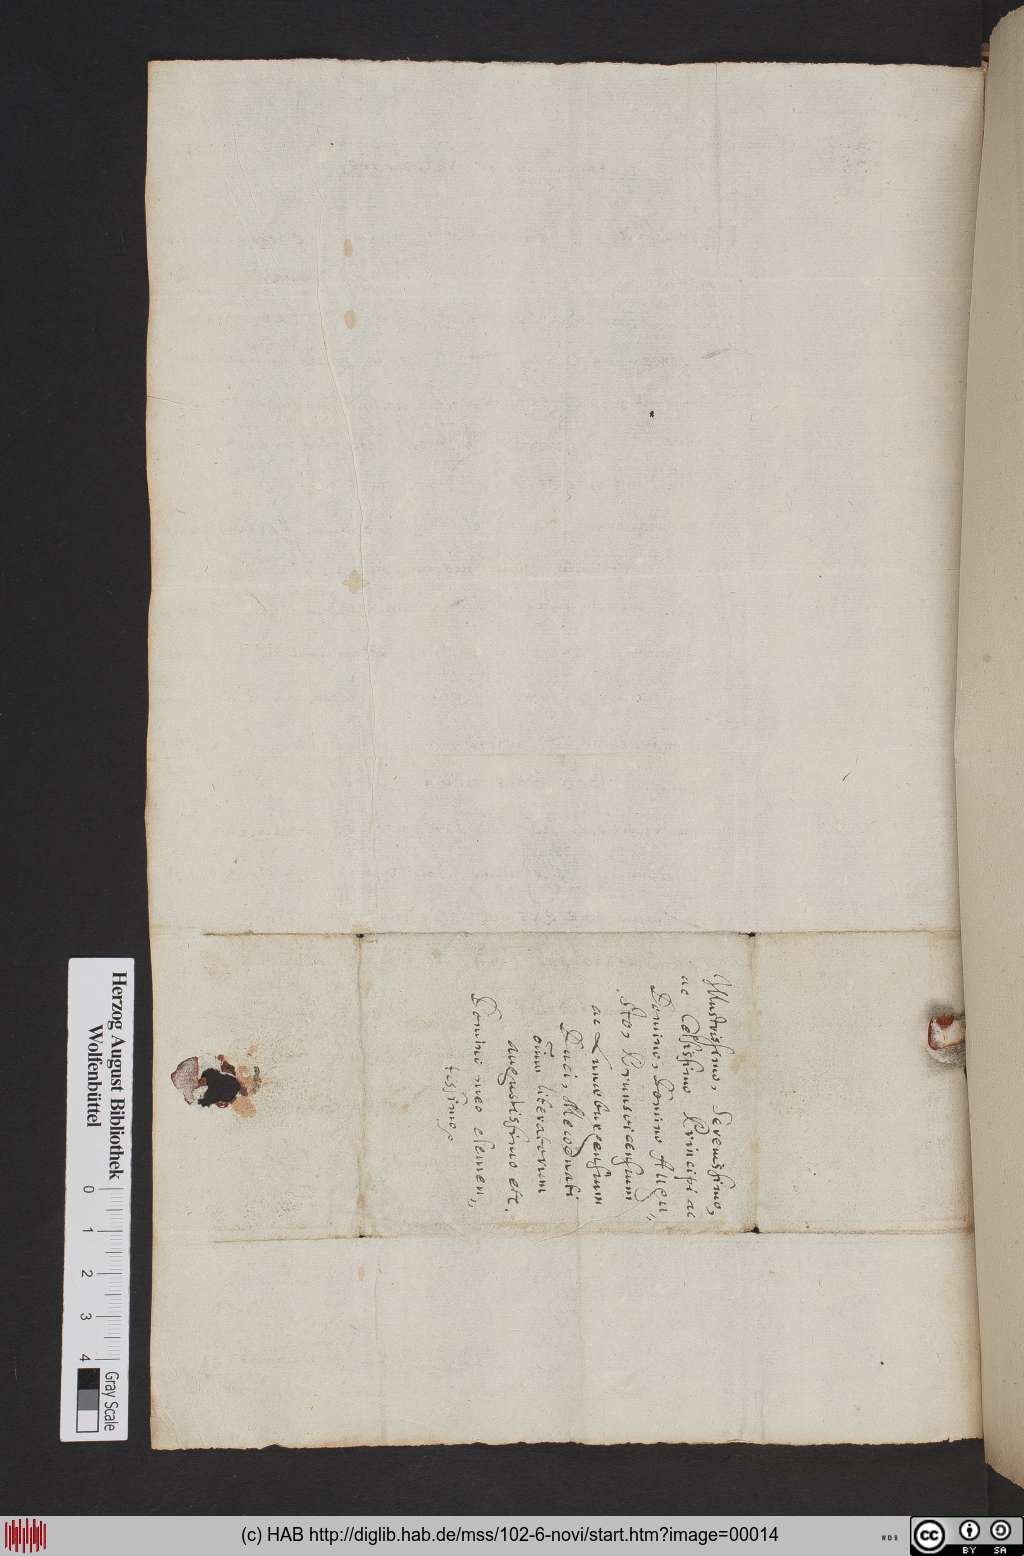 Illustrissimo, Serenissimo,
ac Celsissimo Principi ac
Domino, Domino Augu„
sto, Brunsvicensium
ac Lunæburgensium
Duci, Mecœnati
om̄iu literatorum
augustissimo etc.
Domino meo clemen„
tissimo
Herzog August Bibliothek
Wolfenbüttel
0 1 2 3 4
Gray Scale
(c) HAB http://diglib.hab.de/mss/102-6-novi/start.htm?image=00014
WDB
cc
BY SA